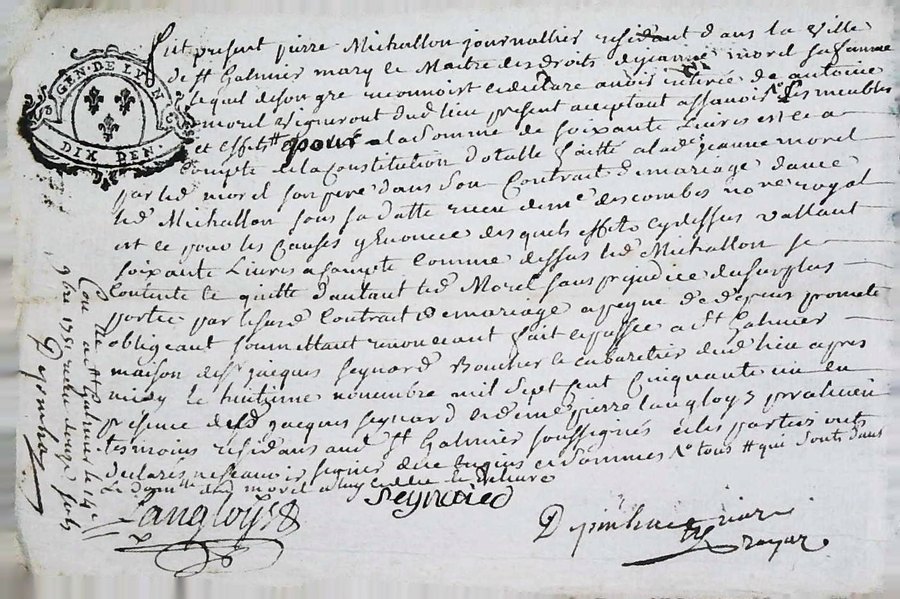 GEN. DE LYON
DIX DEN.
fut présent pierre Michallon journallier residant dans la ville
de St Galmier mary et Maitre des droits de jeanne morel sa famme
lequel de son gre reconnoit et declare avoir retiré de antoine
morel vigneront dud lieu présent aceptant assavoir les meubles
et effets pour a la somme de soixante Livres et ce a
Compte de la Constitution dotalle faitte a lad jeanne morel
par led morel son pere dans son Contrait de mariage avec
led Michallon sous sa datte receu de me descombes nore royal
et ce pour les Causes y Enoncée des quels effets cy dessus vallant
soixante Livres a Compte Comme dessus led Michallon se
Contente et quitte d'autant led Morel sans prejudice du surplus
portée par le surd Contrait de mariage a peyne de depens promete
obligeant soumettant renonceant fait et passée a St Galmier
maison de Sr jacques seynard Boucher et cabaretier dud lieu apres
midy le huitieme novembre mil sept cent Cinquante un en
présence dud Sr jacques seynard et de me pierre langloys praticien
temoins residans aud St Galmier soussignés et les parties onts
declarés ne scavoir signer de ce enquis et sommés tous qui sont dans
domlle dud morel
Langloys
Seynard
royal
Con lle a St Galmier le 14e
9bre 1751 receu douze sols